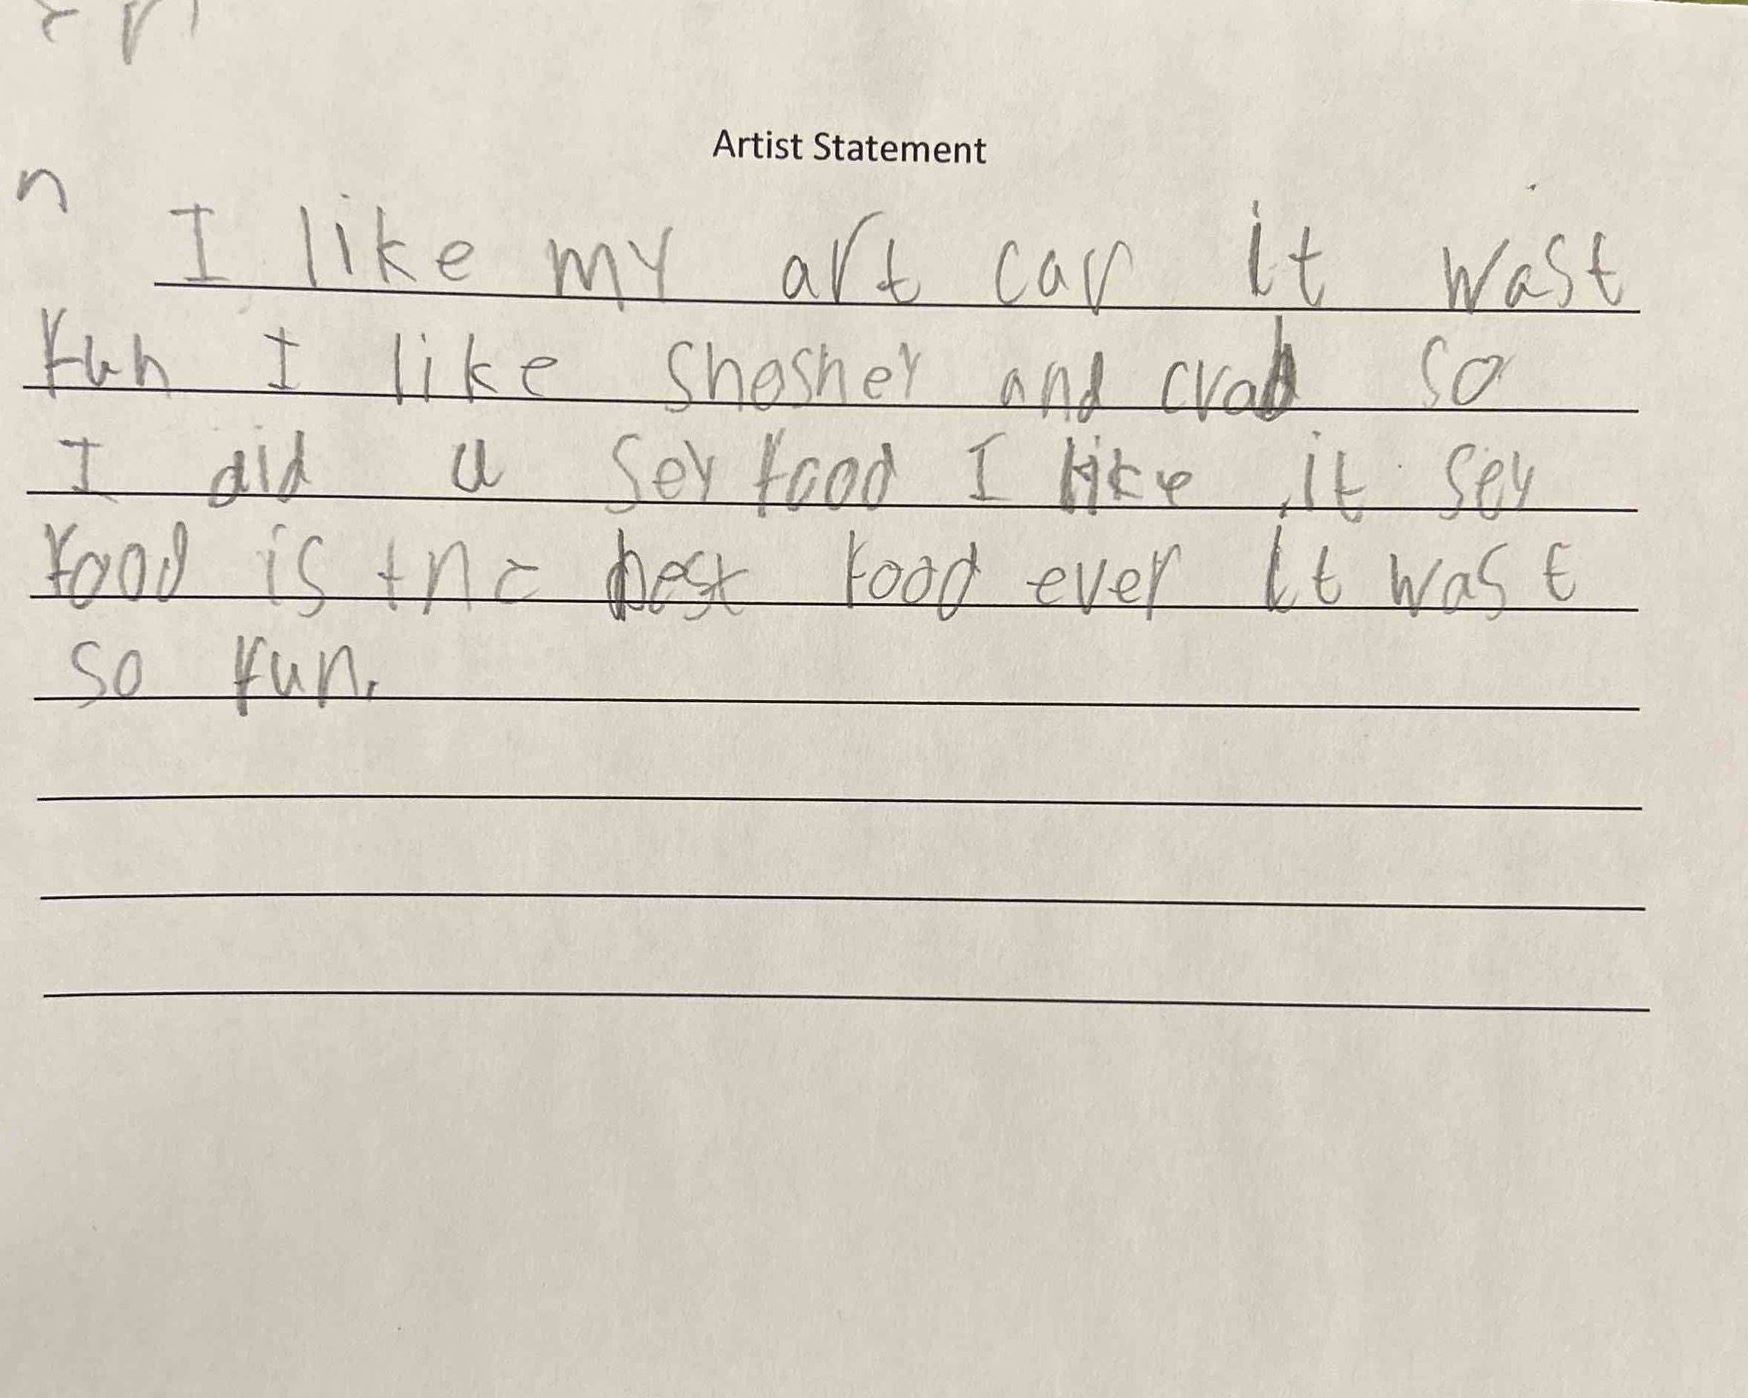 Artist Statement
n
I like my art car it wast
fun I like shosher and crab so
I did a sey food I like it sey
food is the best food ever it wast
so fun.